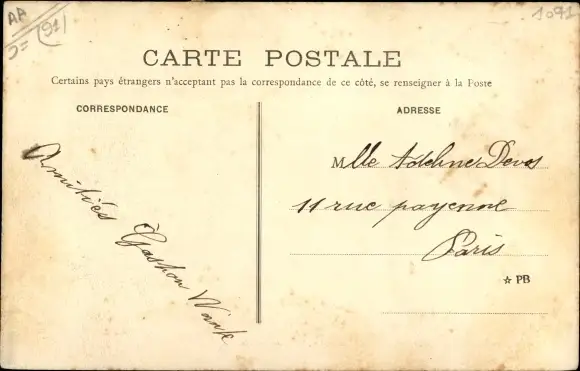 AP
(91)
1091
CARTE POSTALE
Certains pays étrangers n'acceptant pas la correspondance de ce côté, se renseigner à la Poste
CORRESPONDANCE
Amitiés
Gaston Wink
ADRESSE
Mlle Adeline Devos
11 rue payenne
Paris
☆ PB